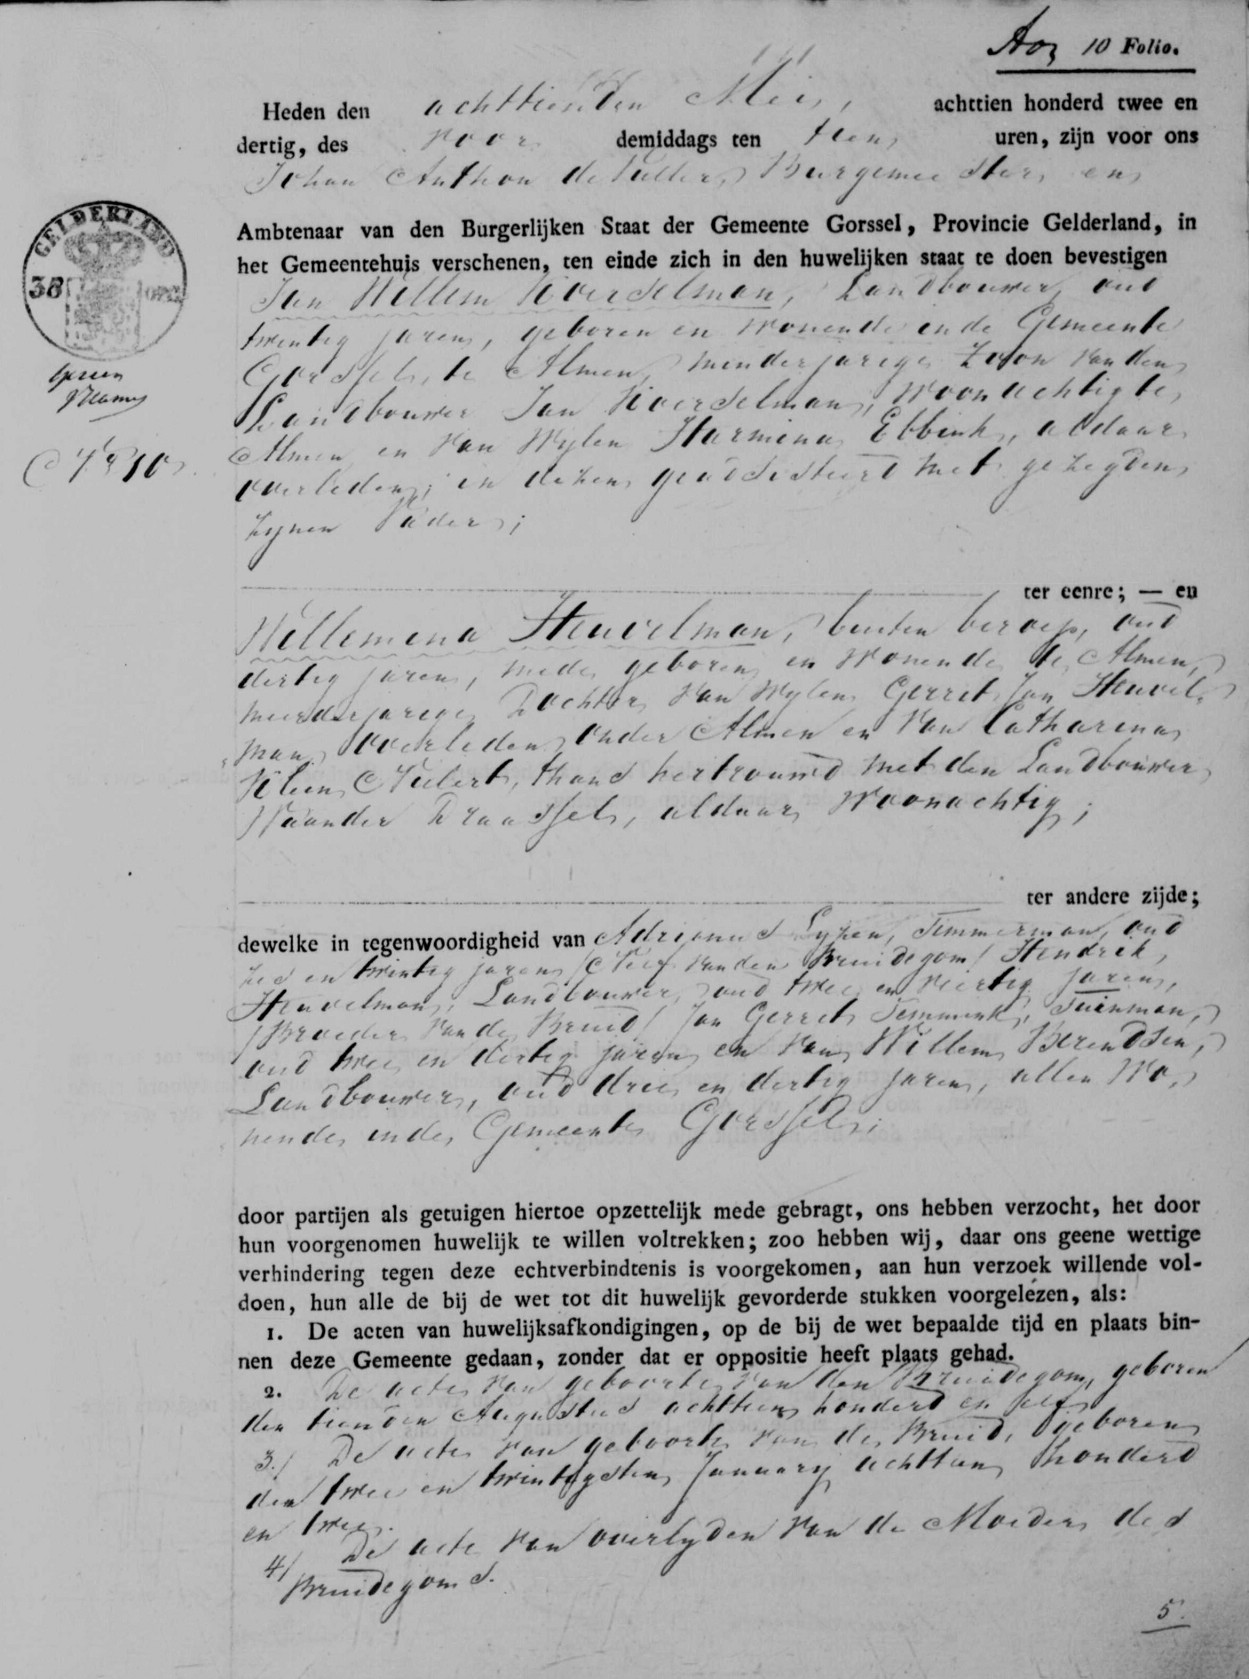 10 Folio.
Heden den achttienden Mei, achttien honderd twee en
dertig, des voor demiddags ten tien uren, zijn voor ons
Johan Anthon de Vulder, Burgemeester en
Ambtenaar van den Burgerlijken Staat der Gemeente Gorssel, Provincie Gelderland, in
het Gemeentehuis verschenen, ten einde zich in den huwelijken staat te doen bevestigen
GELDERLAND
38
Jan Willem Koerselman, Landbouwer, oud
twintig jaren, geboren en wonende in de Gemeente
Gorssel, te Almen, minderjarige Zoon van den
Landbouwer Jan Koerselman, woonachtig te
Almen en van wylen Harmina Ebbink, aldaar
overleden; in dezen geadsisteerd met gezegden
zynen Vader;
No 10
ter eenre; — en
Willemina Heuvelman, buiten beroep, oud
dertig jaren, mede geboren en wonende te Almen,
meerderjarige Dochter van wylen Gerrit Jan Heuvel-
man, overleden onder Almen en van Catharina
Klein Nulert, thans hertrouwd met den Landbouwer
Waander Draassel, aldaar woonachtig;
ter andere zijde;
dewelke in tegenwoordigheid van Adrianus Lyzen, Timmerman, oud
zes en twintig jaren /Neef van den Bruidegom/ Hendrik
Heuvelman, Landbouwer, oud twee en veertig jaren,
/Broeder van de Bruid/ Jan Gerrit Temmink, Tuinman,
oud twee en dertig jaren en van Willem Berendsen,
Landbouwer, oud drie en dertig jaren, allen wo-
nende in de Gemeente Gorssel;
door partijen als getuigen hiertoe opzettelijk mede gebragt, ons hebben verzocht, het door
hun voorgenomen huwelijk te willen voltrekken; zoo hebben wij, daar ons geene wettige
verhindering tegen deze echtverbindtenis is voorgekomen, aan hun verzoek willende vol-
doen, hun alle de bij de wet tot dit huwelijk gevorderde stukken voorgelezen, als:
1. De acten van huwelijksafkondigingen, op de bij de wet bepaalde tijd en plaats bin-
nen deze Gemeente gedaan, zonder dat er oppositie heeft plaats gehad.
2. De acte van geboorte van den Bruidegom, geboren
den tienden Augustus achttien honderd en elf
3./ De acte van geboorte van de Bruid, geboren
den twee en twintigsten January achttien honderd
en twee.
4/ De acte van overlyden van de Moeder des
Bruidegoms.
5.